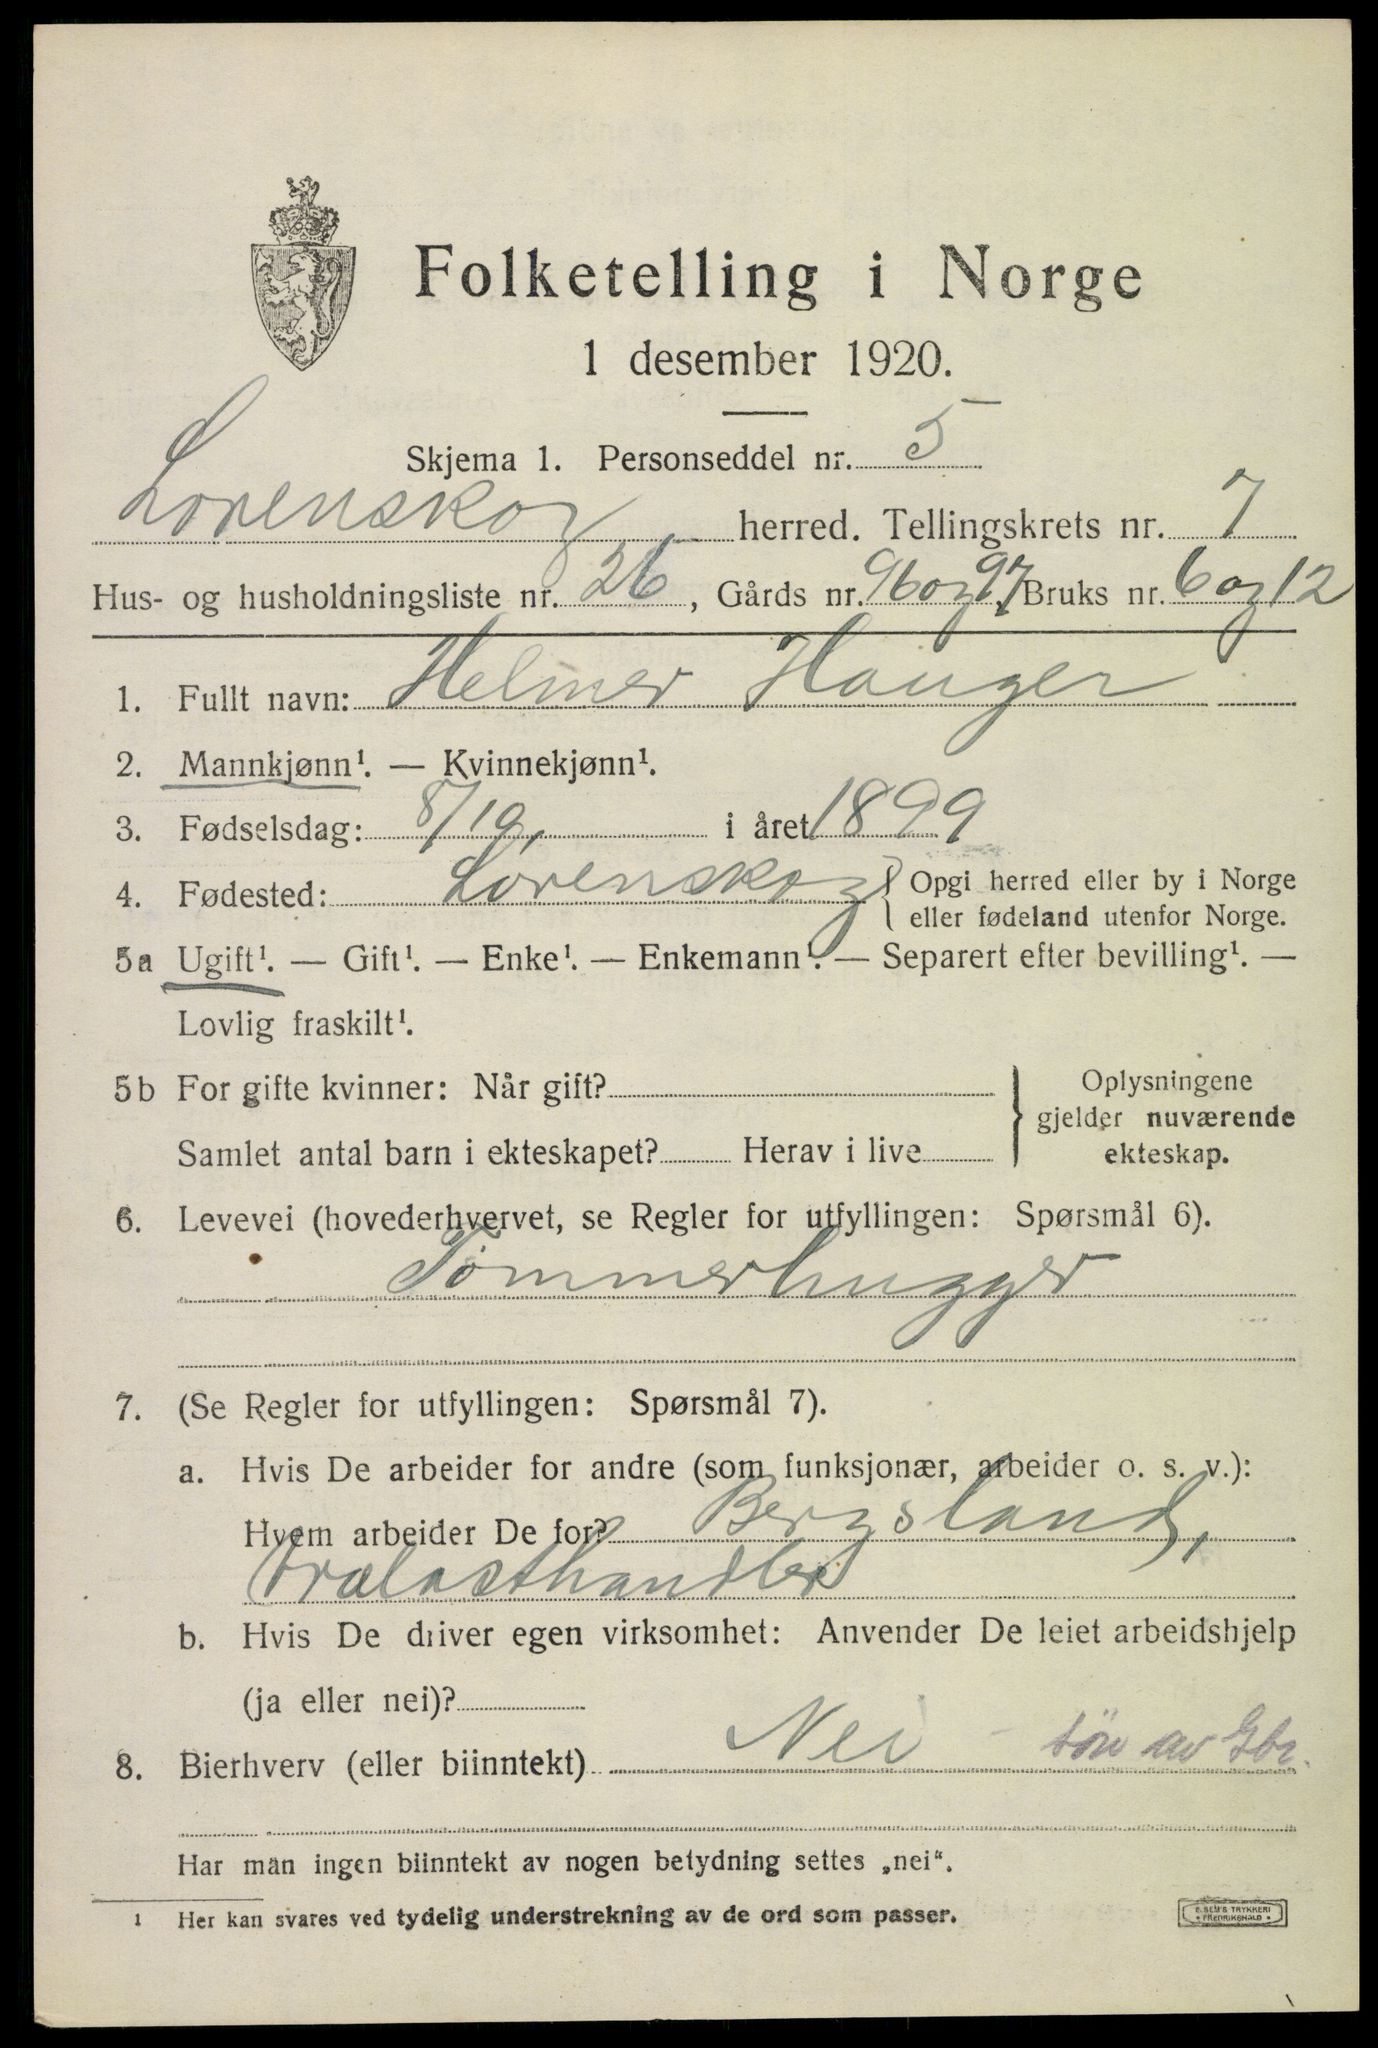 Folketelling i Norge
1 desember 1920.
Skjema 1. Personseddel nr. 5
Lørenskog herred. Tellingskrets nr. 7
Hus- og husholdningsliste nr. 26, Gårds nr. 96 og 97, Bruks nr. 6 og 12
1. Fullt navn: Helmer Hauger
2. Mannkjønn¹. — Kvinnekjønn¹.
3. Fødselsdag: 8/10, i året 1899
4. Fødested: Lørenskog { Opgi herred eller by i Norge
eller fødeland utenfor Norge.
5a Ugift¹. — Gift¹. — Enke¹. — Enkemann¹. — Separert efter bevilling¹. —
Lovlig fraskilt¹.
5b For gifte kvinner: Når gift? } Oplysningene
gjelder nuværende
Samlet antal barn i ekteskapet? Herav i live ekteskap.
6. Levevei (hovederhvervet, se Regler for utfyllingen: Spørsmål 6).
Tømmerhugger
7. (Se Regler for utfyllingen: Spørsmål 7).
a. Hvis De arbeider for andre (som funksjonær, arbeider o. s. v.):
Hvem arbeider De for? Bergsland,
trælasthandler
b. Hvis De driver egen virksomhet: Anvender De leiet arbeidshjelp
(ja eller nei)?
8. Bierhverv (eller biinntekt) Nei søn av Gbr.
Har man ingen biinntekt av nogen betydning settes „nei“.
¹ Her kan svares ved tydelig understrekning av de ord som passer.
E. SEM'S TRYKKERI
• FREDRIKSHALD •